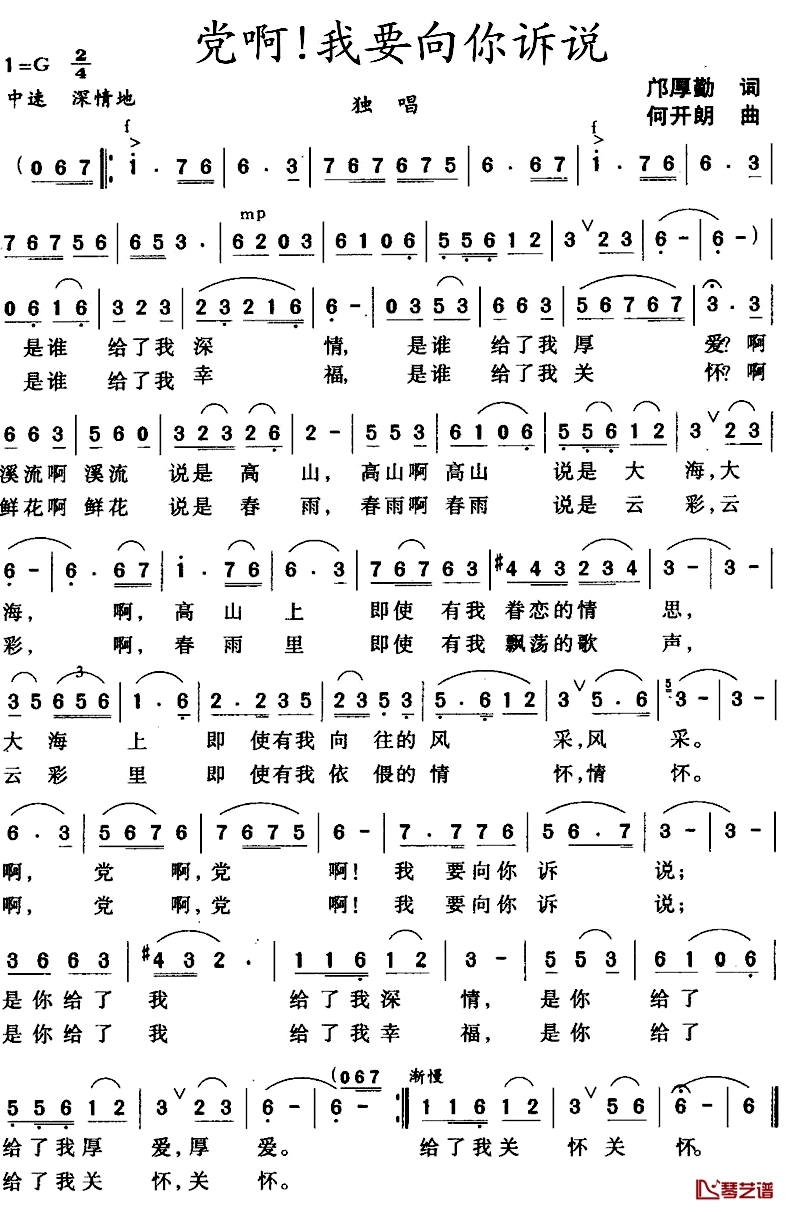 党啊!我要向你诉说
1=G 2/4
邝厚勤 词
中速 深情地
独 唱
何开朗 曲
f f
(0 6 7 ‖: i · 7 6 | 6 · 3 | 7 6 7 6 7 5 | 6 · 6 7 | i · 7 6 | 6 · 3 |
mp
7 6 7 5 6 | 6 5 3 · | 6 2 0 3 | 6 1 0 6 | 5 5 6 1 2 | 3 ∨ 2 3 | 6 - | 6 - )
0 6 1 6 | 3 2 3 | 2 3 2 1 6 | 6 - | 0 3 5 3 | 6 6 3 | 5 6 7 6 7 | 3 · 3 |
是谁 给了我 深 情, 是谁 给了我 厚 爱? 啊
是谁 给了我 幸 福, 是谁 给了我 关 怀? 啊
6 6 3 | 5 6 0 | 3 2 3 2 6 | 2 - | 5 5 3 | 6 1 0 6 | 5 5 6 1 2 | 3 ∨ 2 3 |
溪流啊 溪流 说是 高 山, 高山啊 高山 说是 大 海,大
鲜花啊 鲜花 说是 春 雨, 春雨啊 春雨 说是 云 彩,云
6 - | 6 · 6 7 | i · 7 6 | 6 · 3 | 7 6 7 6 3 | #4 4 3 2 3 4 | 3 - | 3 - |
海, 啊, 高 山 上 即使 有我 眷恋的情 思,
彩, 啊, 春 雨 里 即使 有我 飘荡的歌 声,
3
3 5 6 5 6 | 1 · 6 | 2 · 2 3 5 | 2 3 5 3 | 5 · 6 1 2 | 3 ∨ 5 · 6 | 5 3 - | 3 - |
大 海 上 即 使有我 向 往的 风 采,风 采。
云 彩 里 即 使有我 依 偎的 情 怀,情 怀。
6 · 3 | 5 6 7 6 | 7 6 7 5 | 6 - | 7 · 7 7 6 | 5 6 · 7 | 3 - | 3 - |
啊, 党 啊,党 啊! 我 要向你 诉 说;
啊, 党 啊,党 啊! 我 要向你 诉 说;
3 6 6 3 | #4 3 2 · | 1 1 6 1 2 | 3 - | 5 5 3 | 6 1 0 6 |
是你给了 我 给了我深 情, 是你 给了
是你给了 我 给了我幸 福, 是你 给了
(0 6 7 渐慢
5 5 6 1 2 | 3 ∨ 2 3 | 6 - | 6 - :‖ 1 1 6 1 2 | 3 ∨ 5 6 | 6 - | 6 ‖
给了我厚 爱,厚 爱。 给了我关 怀 关 怀。
给了我关 怀,关 怀。
琴艺谱